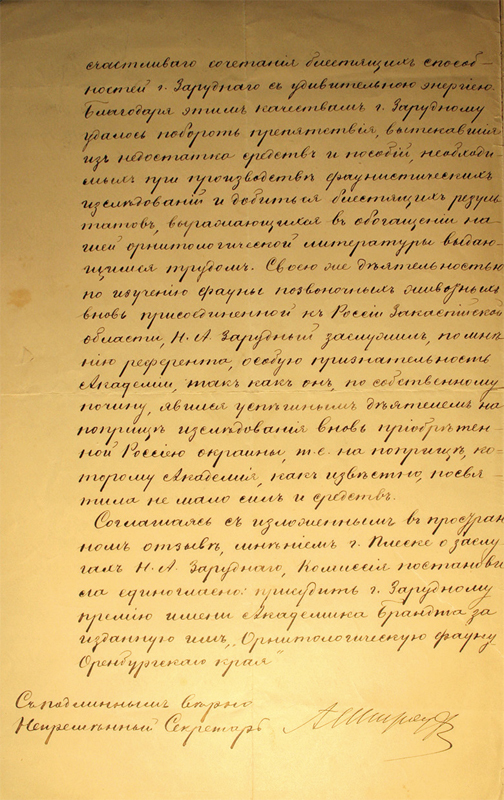 счастливаго сочетанія блестящихъ способ-
ностей г. Заруднаго съ удивительною энергіею.
Благодаря этимъ качествамъ г. Зарудному
удалось побороть препятствія, вытекавшія
изъ недостатка средствъ и пособій, необходи
мыхъ при производствѣ фаунистическихъ
изслѣдованій и добиться блестящихъ резуль
татовъ, выражающихся въ обогащеніи на
шей орнитологической литературы выдаю-
щимся трудомъ. Своею же дѣятельностью
по изученію фауны позвоночныхъ животныхъ
вновь присоединенной къ Россіи Закаспійской
области, Н. А. Зарудный заслужилъ, по мнѣ
нію референта, особую признательность
Академіи, такъ какъ онъ, по собственному
почину, явился успѣшнымъ дѣятелемъ на
поприщѣ изслѣдованія вновь пріобрѣтен-
ной Россіею окраины, т.е. на поприщѣ, ко-
торому Академія, какъ извѣстно, посвя-
тила не мало силъ и средствъ.
Соглашаясь съ изложеннымъ въ простран
номъ отзывѣ, мнѣніемъ г. Плеске о заслу
гахъ Н. А. Заруднаго, Коммисія постанови
ла единогласно: присудить г. Зарудному
премію имени Академика Брандта за
изданную имъ „Орнитологическую фауну
Оренбургскаго края"
Съ подлиннымъ вѣрно
Непремѣнный Секретарь А Штраухъ